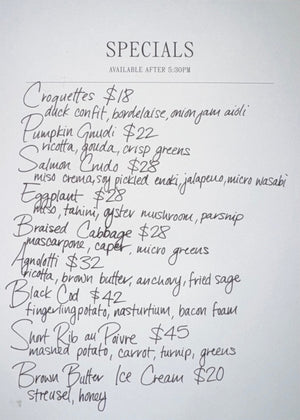 SPECIALS
AVAILABLE AFTER 5:30PM
Croquettes $18
duck confit, bordelaise, onion jam aioli
Pumpkin Gnudi $22
ricotta, gouda, crisp greens
Salmon Crudo $28
miso crema, soy pickled enoki, jalapeno, micro wasabi
Eggplant $28
miso, tahini, oyster mushroom, parsnip
Braised Cabbage $28
mascarpone, caper, micro greens
Agnolotti $32
ricotta, brown butter, anchovy, fried sage
Black Cod $42
fingerling potato, nasturtium, bacon foam
Short Rib au Poivre $45
mashed potato, carrot, turnip, greens
Brown Butter Ice Cream $20
streusel, honey